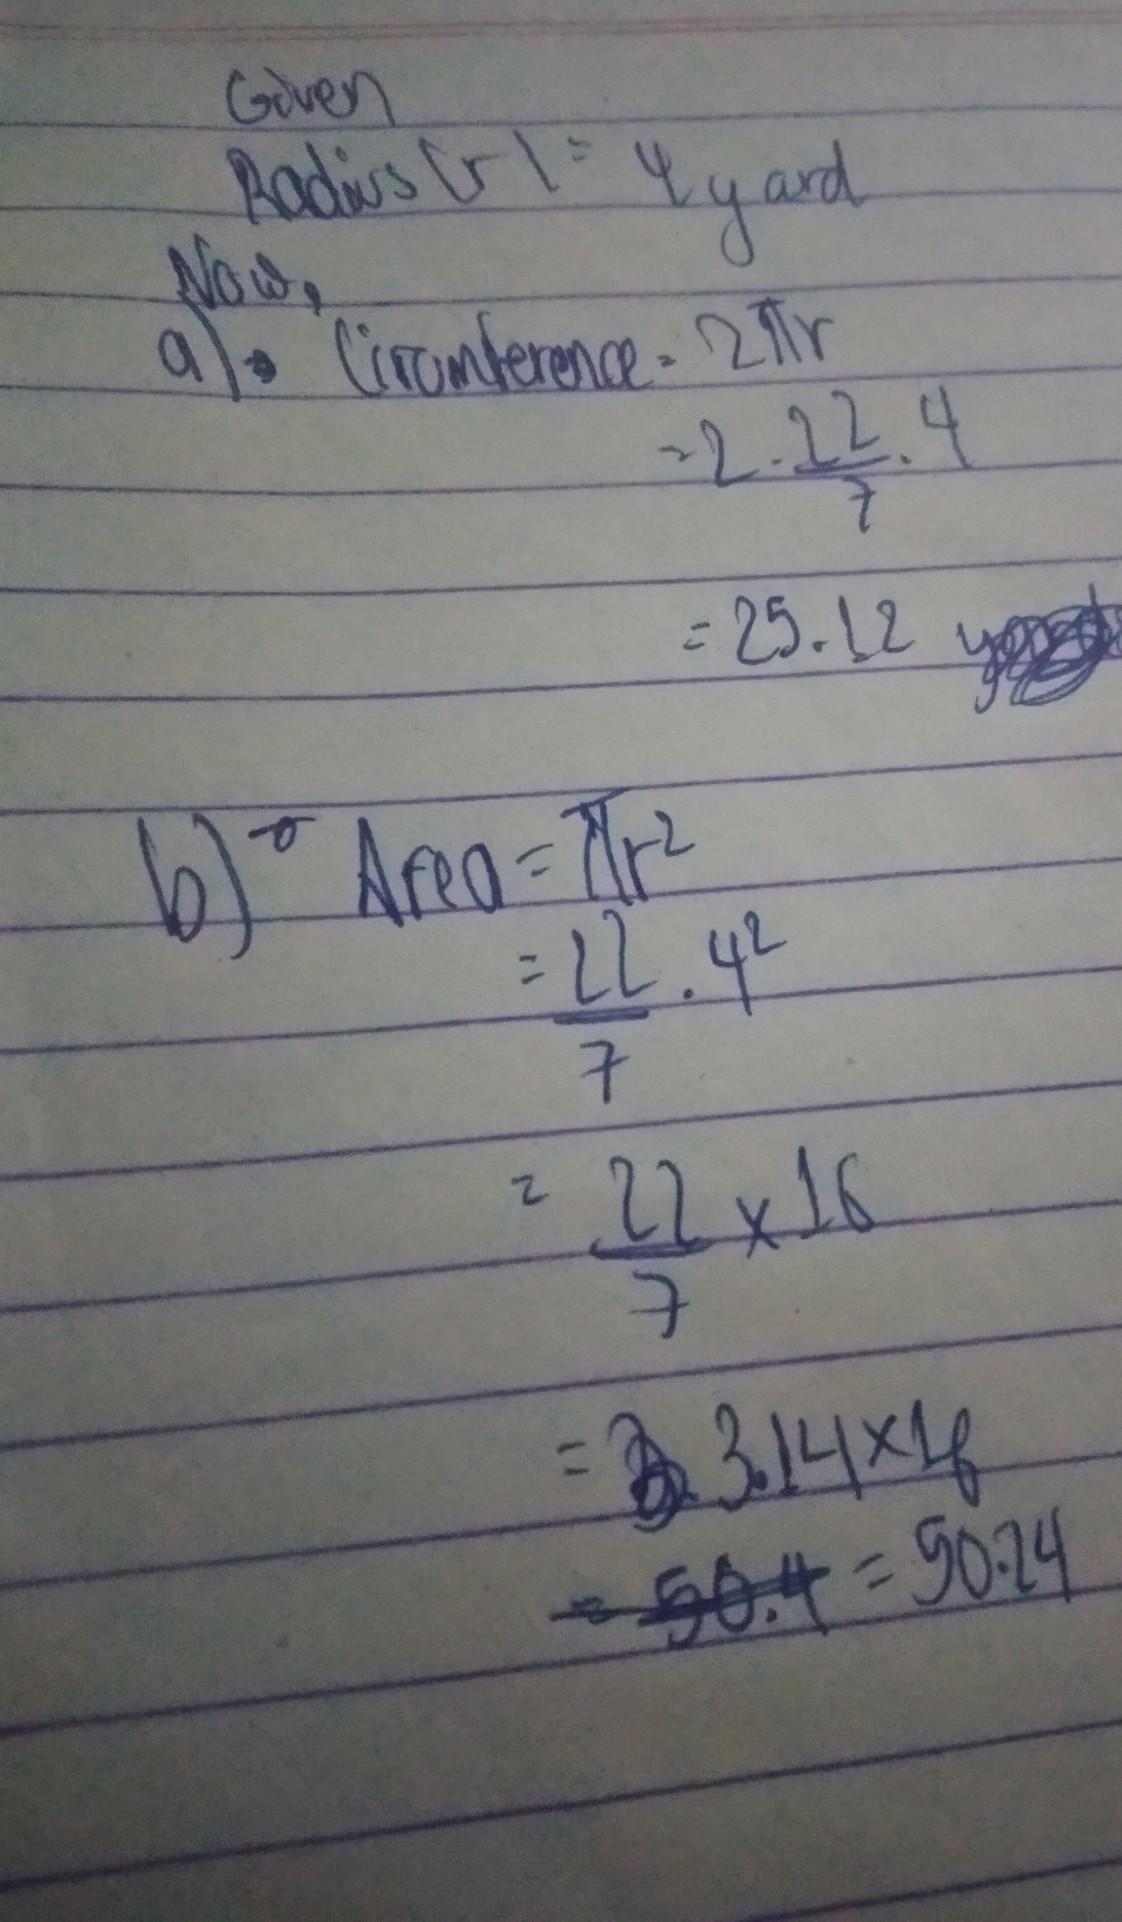 Given
Radius (r) = 4 yard
Now,
a) Circumference = 2πr
= 2 . 22/7 . 4
= 25.12
b) Area = πr²
= 22/7 . 4²
= 22/7 x 16
= 3.14 x 16
= 50.4 = 50.24